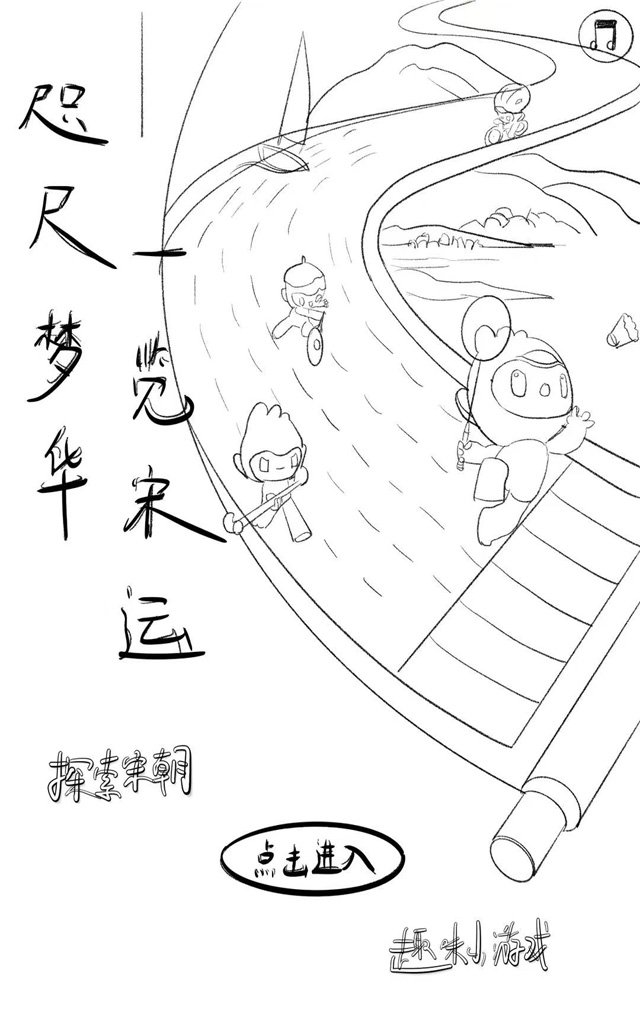 咫尺梦华
一览宋运
探索宋朝
点击进入
趣味小游戏